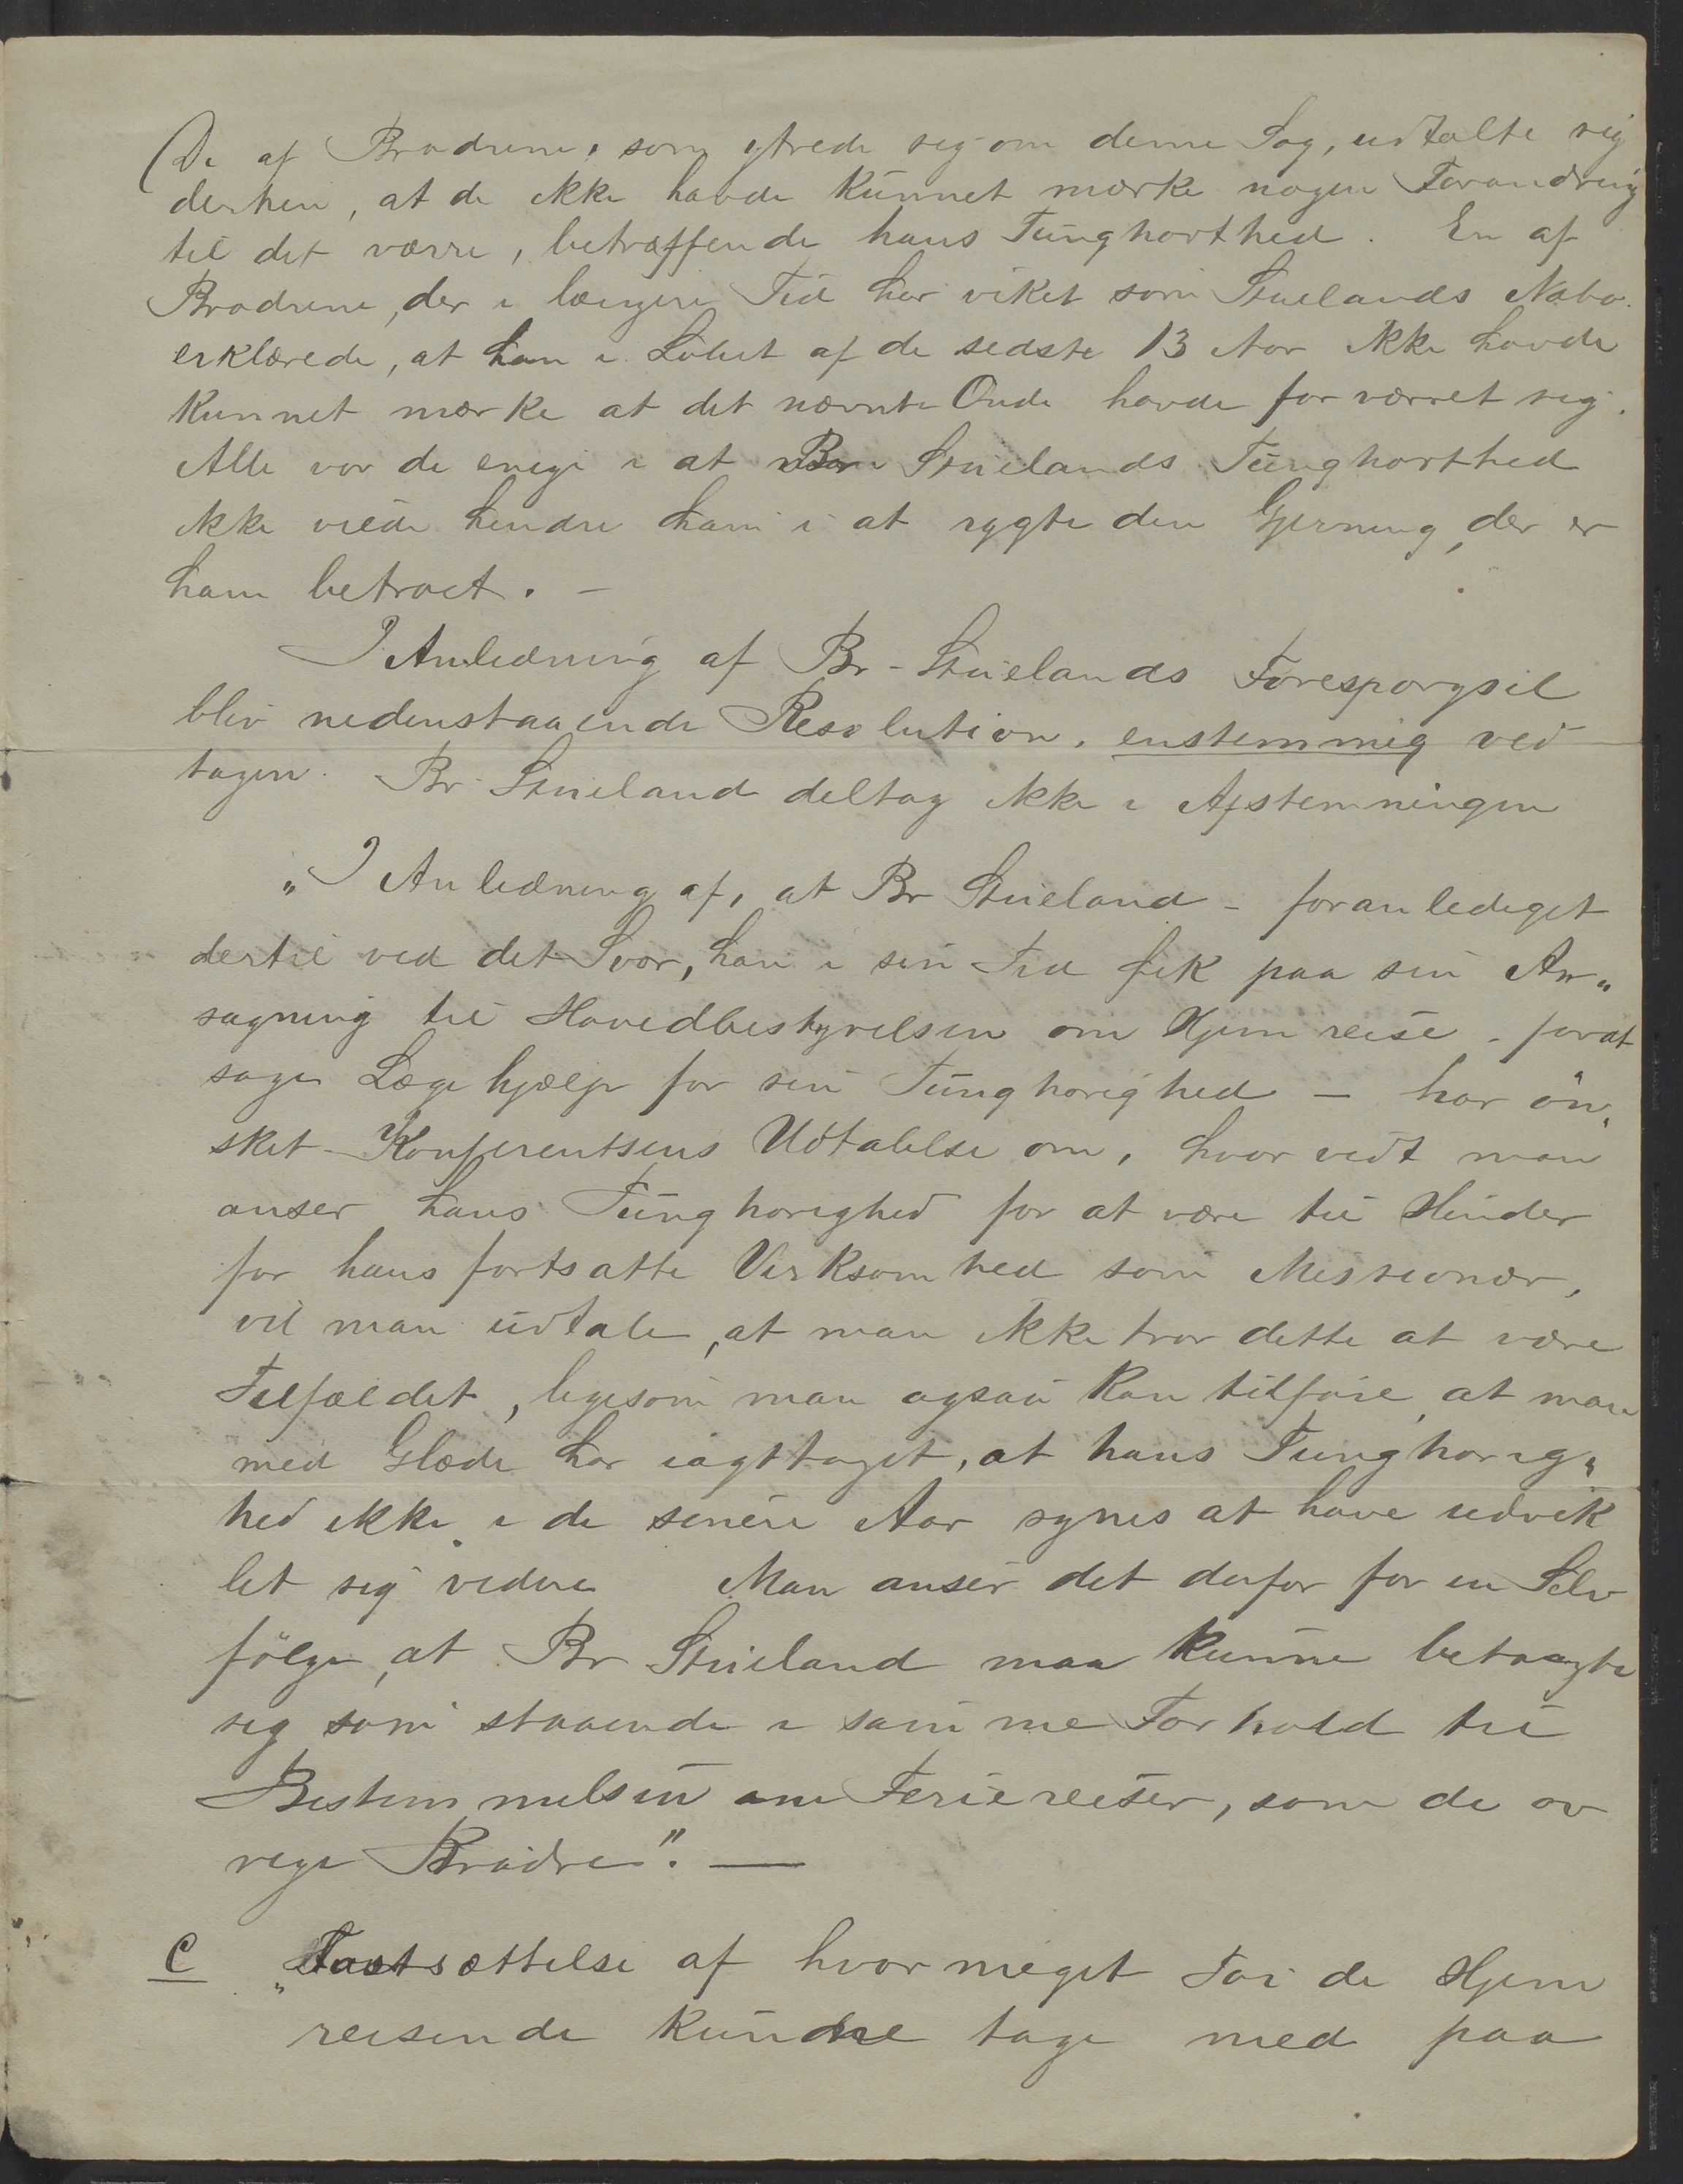 De af Brødrene, som ytrede sig om denne Sag, udtalte sig
derhen, at de ikke havde kunnet mærke nogen Forandring
til det værre, betræffende hans Tunghørthed. En af
Brødrene, der i længere Tid har virket som Stuelands Nabo
erklærede, at han i Løbet af de sidste 13 Aar ikke havde
kunnet mærke at det nævnte Onde havde forværret sig.
Alle var de enige i at Br Stuelands Tunghørthed
ikke vilde hindre ham i at røgte den Gjerning, der er
ham betroet. -
I Anledning af Br - Stuelands Forespørgsel
blev nedenstaaende Resolution, enstemmig ved
tagen. Br Stueland deltog ikke i Afstemningen
"I Anledning af, at Br Stueland - foranlediget
dertil ved det Svar, han i sin Tid fik paa sin An"
søgning til Hovedbestyrelsen om Hjemreise - for at
søge Lægehjælp for sin Tunghørighed - har øn"
sket Konferentsens Udtalelse om, hvorvidt man
anser hans Tunghørighed for at være til Hinder
for hans fortsatte Virksomhed som Missionær,
vil man udtale, at man ikke tror dette at være
Tilfældet, ligesom man ogsaa kan tilføie, at man
med Glæde har iagttaget, at hans Tunghørig"
hed ikke i de senere Aar synes at have udvik
let sig videre Man anser det derfor for en Selv
følge, at Br Stueland maa kunne betragte
sig som staaende i samme Forhold til
Bestemmelsen om Feriereiser, som de øv
rige Brødre". —
C "Fastsættelse af hvor meget Tøi de Hjem
reisende kunde tage med paa